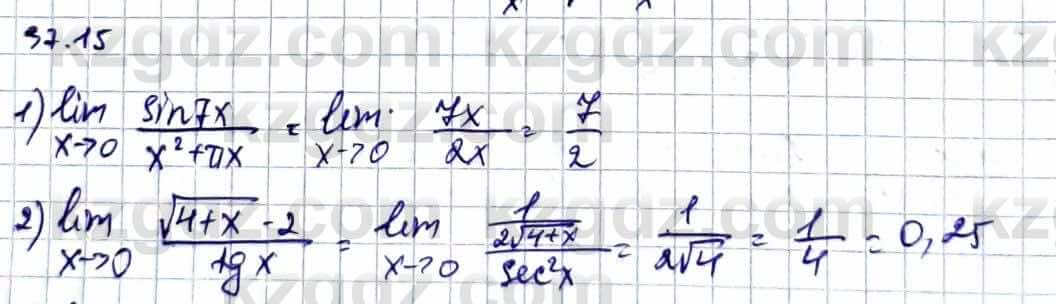 37.15
1) lim x→0 sin7x / (x² + πx) = lim x→0 7x / 2x = 7/2
2) lim x→0 (√(4+x) - 2) / tg x = lim x→0 (1 / (2√(4+x))) / sec²x = 1 / (2√4) = 1/4 = 0,25
kzgdz.com